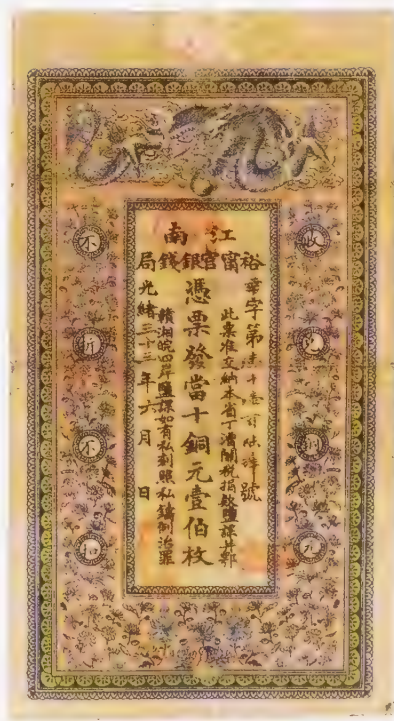 江南
裕甯官銀錢局
章字第 號
此票准交納本省丁漕關稅捐款鹽課幷鄂
憑票發當十銅元壹佰枚
贛湘皖四岸鹽課如有私刻照私鑄例治罪
光緒三十三年六月 日
收兌銅元
不折不扣